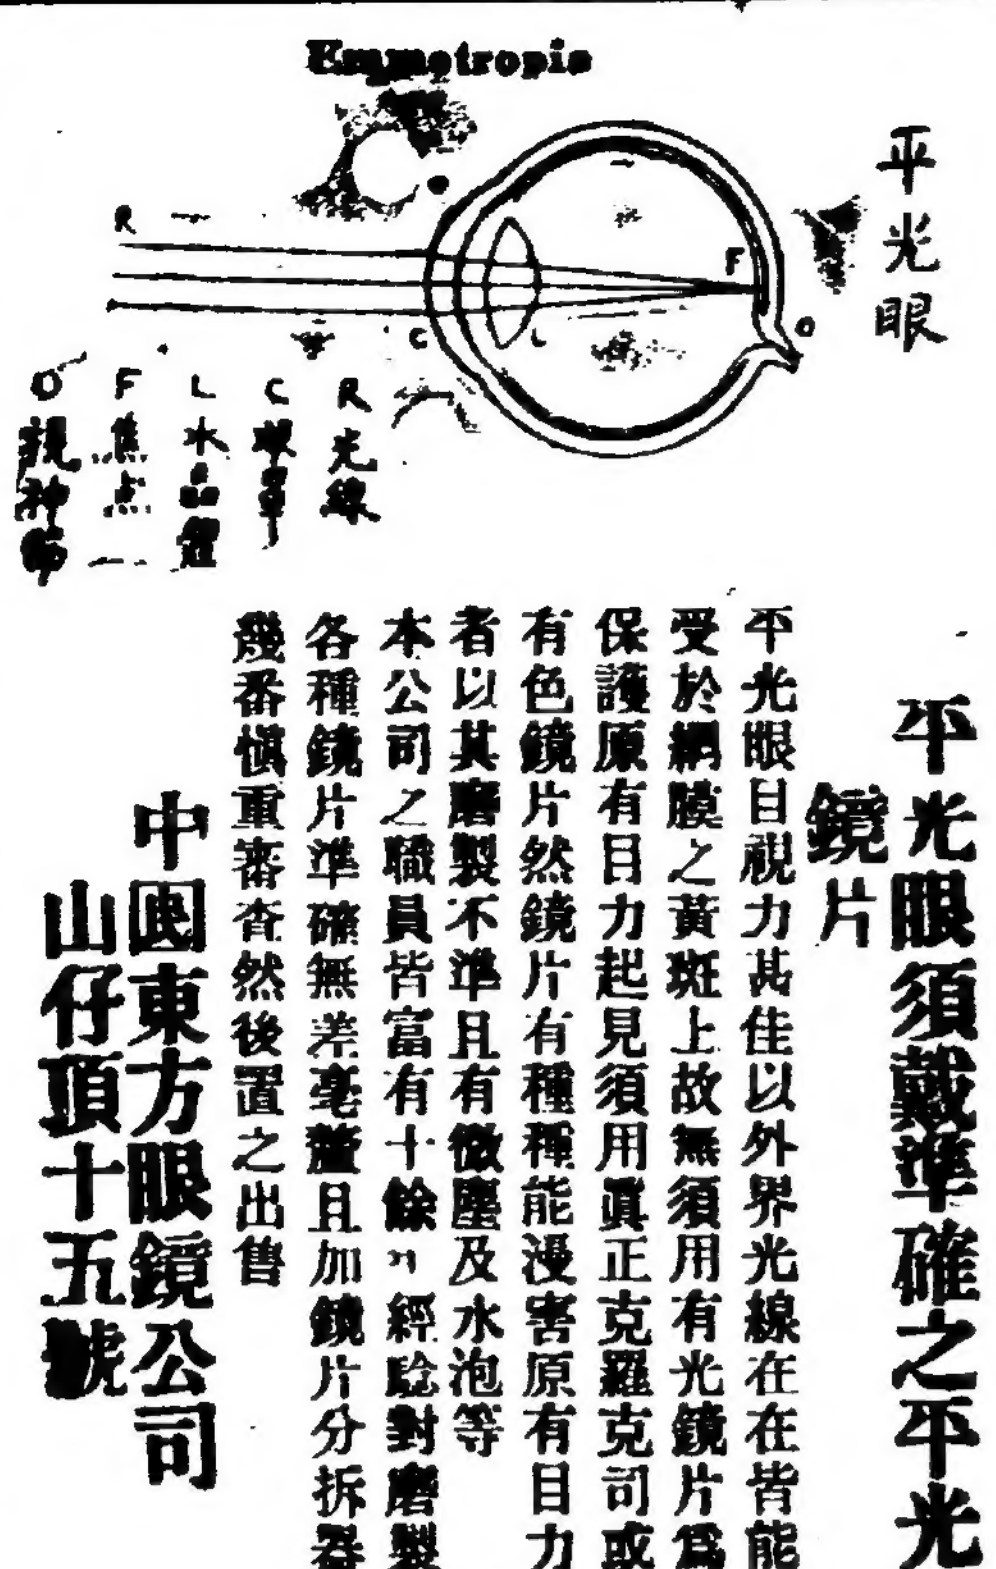 Emmetropia
平光眼
R
F
C
L
O
R光線
C眼罩
L水晶體
F焦点
O視神
平光眼須戴準確之平光
鏡片
平光眼目視力甚佳以外界光線在在皆能
受於網膜之黃斑上故無須用有光鏡片爲
保護原有目力起見須用眞正克羅克司或
有色鏡片然鏡片有種種能漫害原有目力
者以其磨製不準且有微塵及水泡等
本公司之職員皆富有十餘經驗對磨製
各種鏡片準確無差毫釐且加鏡片分拆器
幾番愼重審查然後置之出售
中國東方眼鏡公司
山仔頂十五號